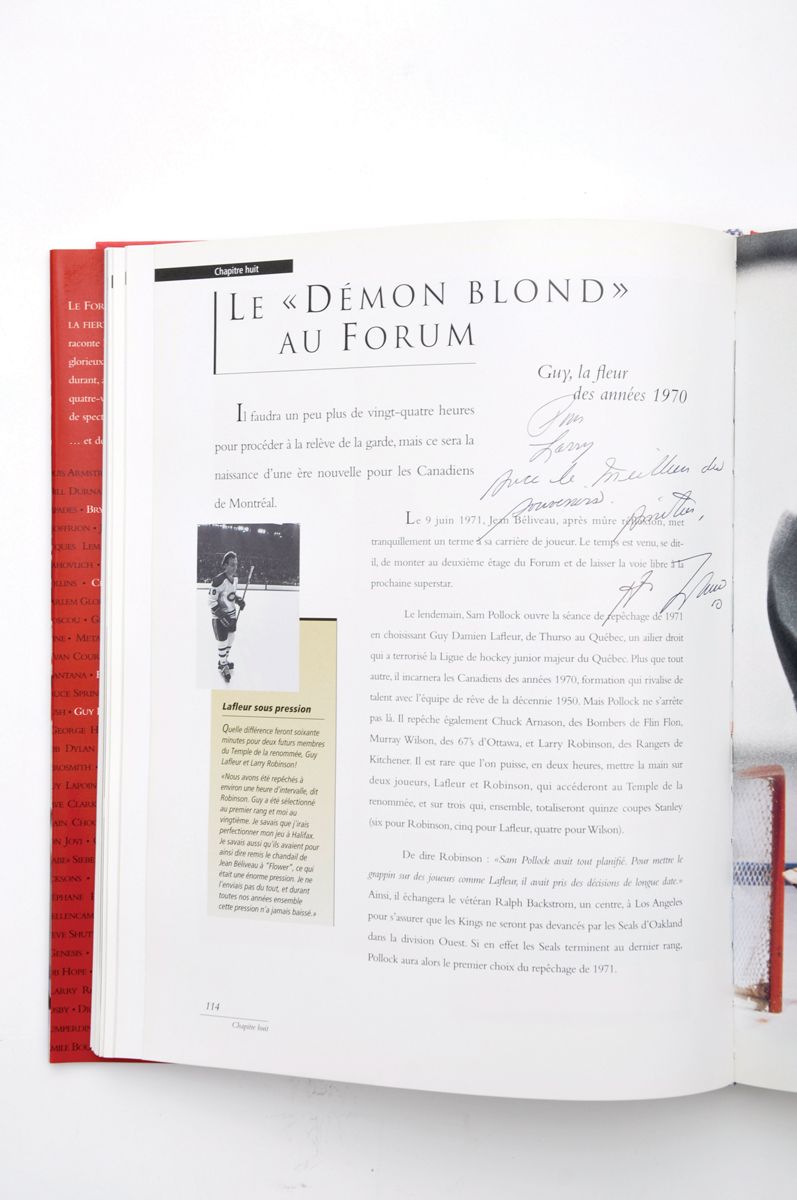 Chapitre huit
LE «DÉMON BLOND»
AU FORUM
Guy, la fleur
des années 1970
Il faudra un peu plus de vingt-quatre heures
pour procéder à la relève de la garde, mais ce sera la
naissance d'une ère nouvelle pour les Canadiens
de Montréal.
Pour
Larry
Avec le meilleur de
souvenirs.
Le 9 juin 1971, Jean Béliveau, après mûre réflexion, met
tranquillement un terme à sa carrière de joueur. Le temps est venu, se dit-
il, de monter au deuxième étage du Forum et de laisser la voie libre à la
prochaine superstar.
Le lendemain, Sam Pollock ouvre la séance de repêchage de 1971
en choisissant Guy Damien Lafleur, de Thurso au Québec, un ailier droit
qui a terrorisé la Ligue de hockey junior majeur du Québec. Plus que tout
autre, il incarnera les Canadiens des années 1970, formation qui rivalise de
talent avec l'équipe de rêve de la décennie 1950. Mais Pollock ne s'arrête
pas là. Il repêche également Chuck Arnason, des Bombers de Flin Flon,
Murray Wilson, des 67's d'Ottawa, et Larry Robinson, des Rangers de
Kitchener. Il est rare que l'on puisse, en deux heures, mettre la main sur
deux joueurs, Lafleur et Robinson, qui accéderont au Temple de la
renommée, et sur trois qui, ensemble, totaliseront quinze coupes Stanley
(six pour Robinson, cinq pour Lafleur, quatre pour Wilson).
De dire Robinson : «Sam Pollock avait tout planifié. Pour mettre le
grappin sur des joueurs comme Lafleur, il avait pris des décisions de longue date.»
Ainsi, il échangera le vétéran Ralph Backstrom, un centre, à Los Angeles
pour s'assurer que les Kings ne seront pas devancés par les Seals d'Oakland
dans la division Ouest. Si en effet les Seals terminent au dernier rang,
Pollock aura alors le premier choix du repêchage de 1971.
Lafleur sous pression
Quelle différence feront soixante
minutes pour deux futurs membres
du Temple de la renommée, Guy
Lafleur et Larry Robinson!
«Nous avons été repêchés à
environ une heure d'intervalle, dit
Robinson. Guy a été sélectionné
au premier rang et moi au
vingtième. Je savais que j'irais
perfectionner mon jeu à Halifax.
Je savais aussi qu'ils avaient pour
ainsi dire remis le chandail de
Jean Béliveau à "Flower", ce qui
était une énorme pression. Je ne
l'enviais pas du tout, et durant
toutes nos années ensemble
cette pression n'a jamais baissé.»
114
Chapitre huit
LE FOR
LA FIER
raconte
glorieux
durant, a
quatre-v
de spect
… et de
UIS ARMSTR
ILL DURNA
PADES • BRY
OFFRION • J
QUES LEM
AHOVLICH •
LLINS • C
ARLEM GLO
OSCOU • G
NE • META
VAN COUR
ANTANA • E
UCE SPRIN
SH • GUY L
GEORGE H
OB DYLAN
EROSMITH •
UY LAPOIN
AVE CLARK
AIN CHOC
ON JOVI • C
ABE» SIEBE
CKSONS •
ÉPHANE
ELLENCAM
EVE SHUT
GENESIS •
OB HOPE •
LARRY RO
OSBY • DI
UMPERDIN
MILE BOU